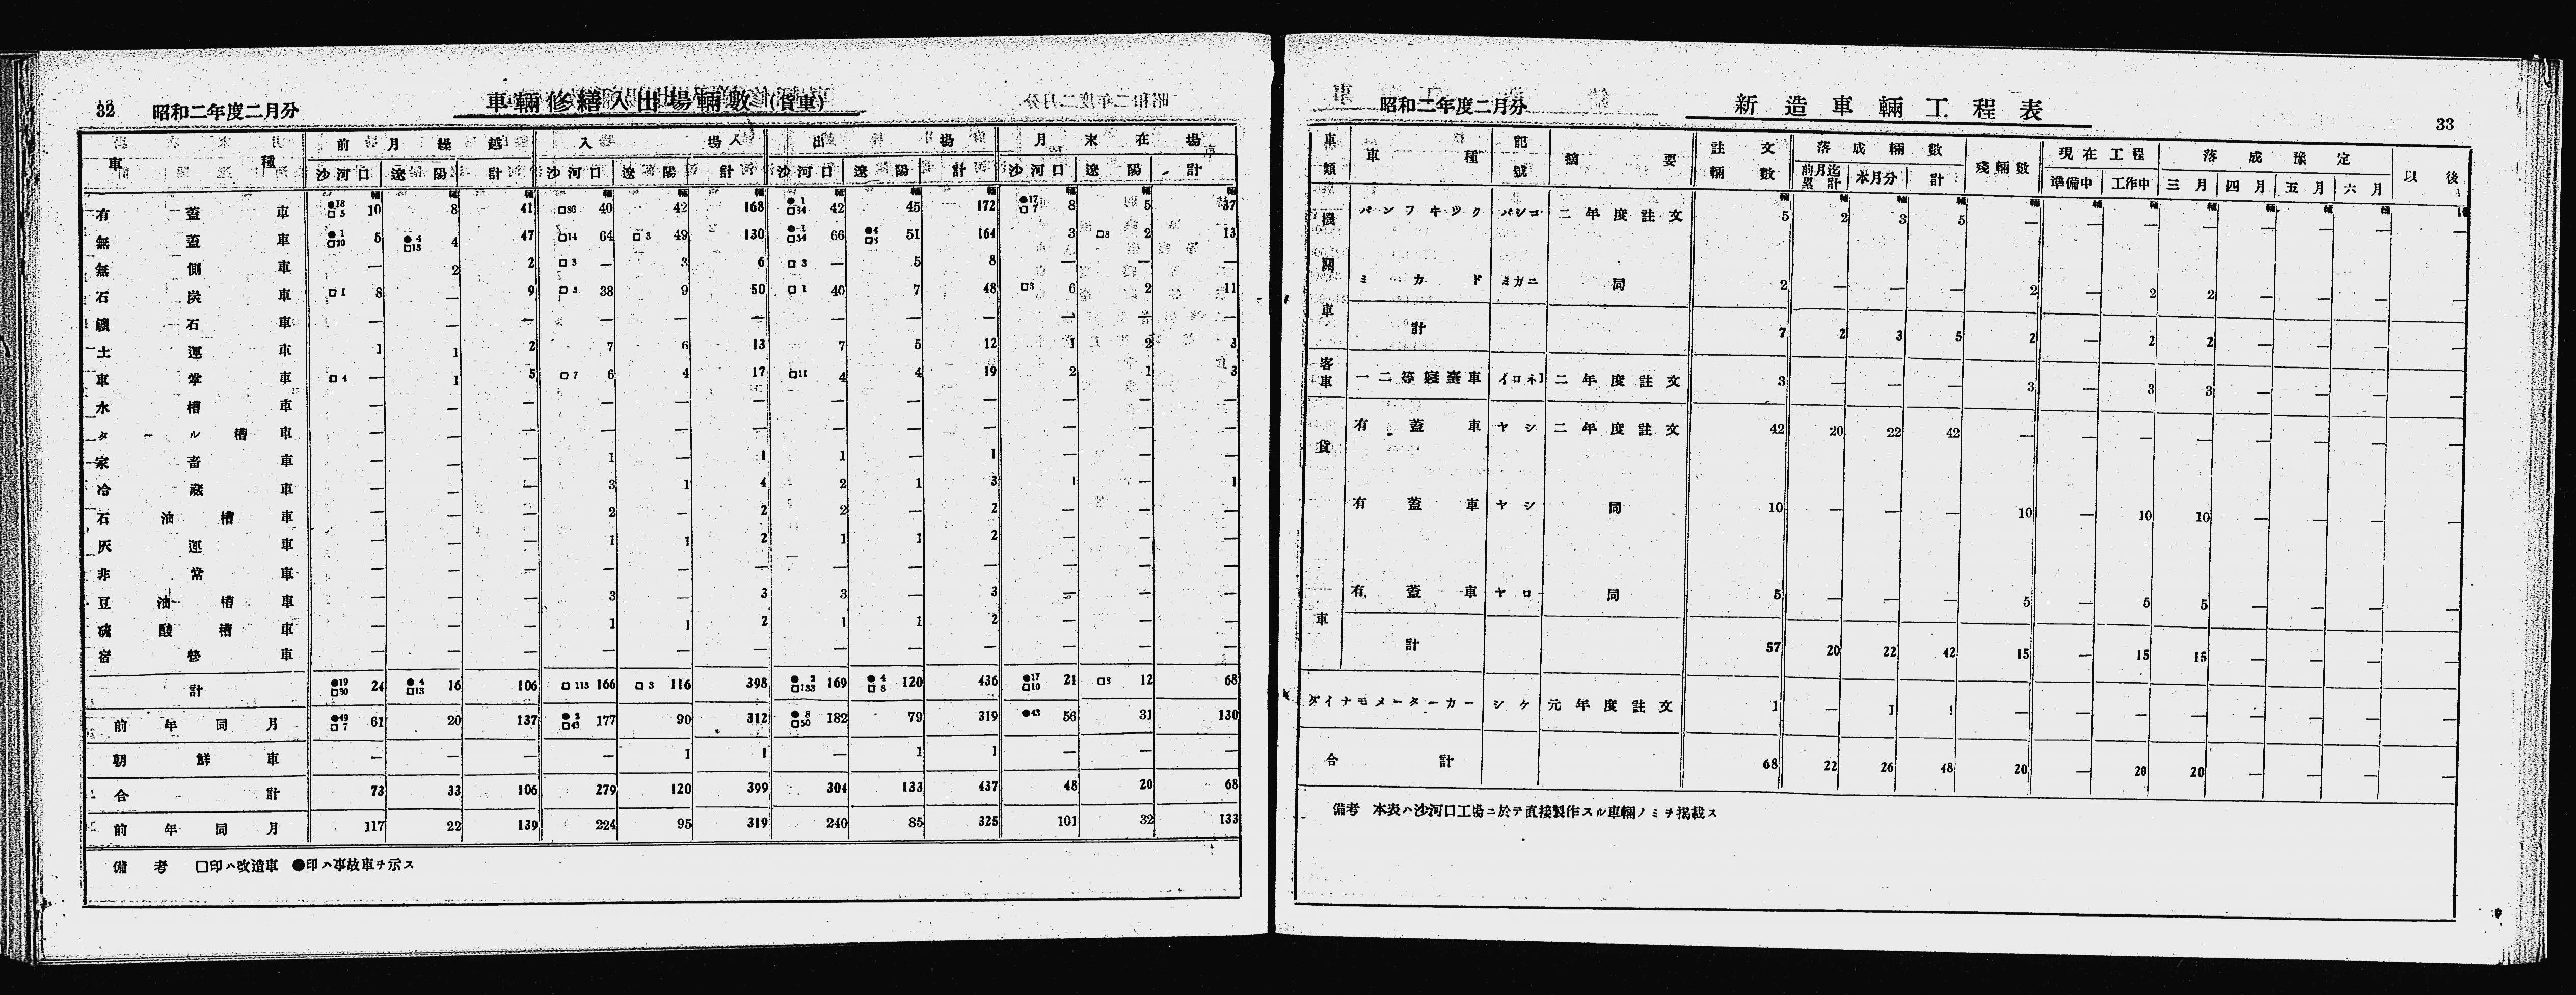 32 昭和二年度二月分 車輛修繕入出場輛數(貨車)
車種 前月繰越 入場 出場 月末在場
沙河口 遼陽 計 沙河口 遼陽 計 沙河口 遼陽 計 沙河口 遼陽 計
輛 輛 輛 輛 輛 輛 輛 輛 輛 輛 輛 輛
有蓋車 ●18 □5 10 8 41 □86 40 42 168 ●1 □84 42 45 172 ●17 □7 8 5 37
無蓋車 ●1 □20 5 ●4 □13 4 47 □14 64 □3 49 130 ●1 □34 66 51 164 3 2 13
無側車 — 2 2 □3 — 3 6 □3 — 5 8 — — —
石炭車 □1 8 — 9 □3 38 9 50 □1 40 7 48 □3 6 2 11
鑛石車 — — — — — — — — — — — —
土運車 1 1 2 7 6 13 7 5 12 1 2 3
車掌車 □4 — 1 5 □7 6 4 17 □11 4 4 19 2 1 3
水槽車 — — — — — — — — — — — —
タール槽車 — — — — — — — — — — — —
家畜車 — — — 1 — 1 1 — 1 — — —
冷蔵車 — — — 3 1 4 2 1 3 1 — 1
石油槽車 — — — 2 — 2 2 — 2 — — —
灰運車 — — — 1 1 2 1 1 2 — — —
非常車 — — — — — — — — — — — —
豆油槽車 — — — 3 — 3 3 — 3 — — —
硫酸槽車 — — — 1 1 2 1 1 2 — — —
宿營車 — — — — — — — — — — — —
計 ●19 □30 24 ●4 □13 16 106 □113 166 □3 116 398 ●2 □133 169 ●4 □8 120 436 ●17 □10 21 12 68
前年同月 ●49 □7 61 20 137 ●2 □43 177 90 312 ●8 □50 182 79 319 ●43 56 31 130
朝鮮車 — — — — 1 1 — 1 1 — — —
合計 73 33 106 279 120 399 304 133 437 48 20 68
前年同月 117 22 139 224 95 319 240 85 325 101 32 133
備考 □印ハ改造車 ●印ハ事故車ヲ示ス
昭和二年度二月分 新造車輛工程表 33
車類 車種 記號 摘要 註文輛數 落成輛數 殘輛數 現在工程 落成豫定 以後
前月迄累計 本月分 計 準備中 工作中 三月 四月 五月 六月
輛 輛 輛 輛 輛 輛 輛 輛 輛 輛 輛
機關車 パシフキツク パシコ 二年度註文 5 2 3 5 — — — — — — — —
ミカド ミカニ 同 2 — — — 2 — 2 2 — — — —
計 7 2 3 5 2 — 2 2 — — — —
客車 一二等寢臺車 イロネ1 二年度註文 3 — — — 3 — 3 3 — — — —
貨車 有蓋車 ヤシ 二年度註文 42 20 22 42 — — — — — — — —
有蓋車 ヤシ 同 10 — — — 10 — 10 10 — — — —
有蓋車 ヤロ 同 5 — — — 5 — 5 5 — — — —
計 57 20 22 42 15 — 15 15 — — — —
ダイナモメーターカー シケ 元年度註文 1 — 1 1 — — — — — — — —
合計 68 22 26 48 20 — 20 20 — — — —
備考 本表ハ沙河口工場ニ於テ直接製作スル車輛ノミヲ掲載ス